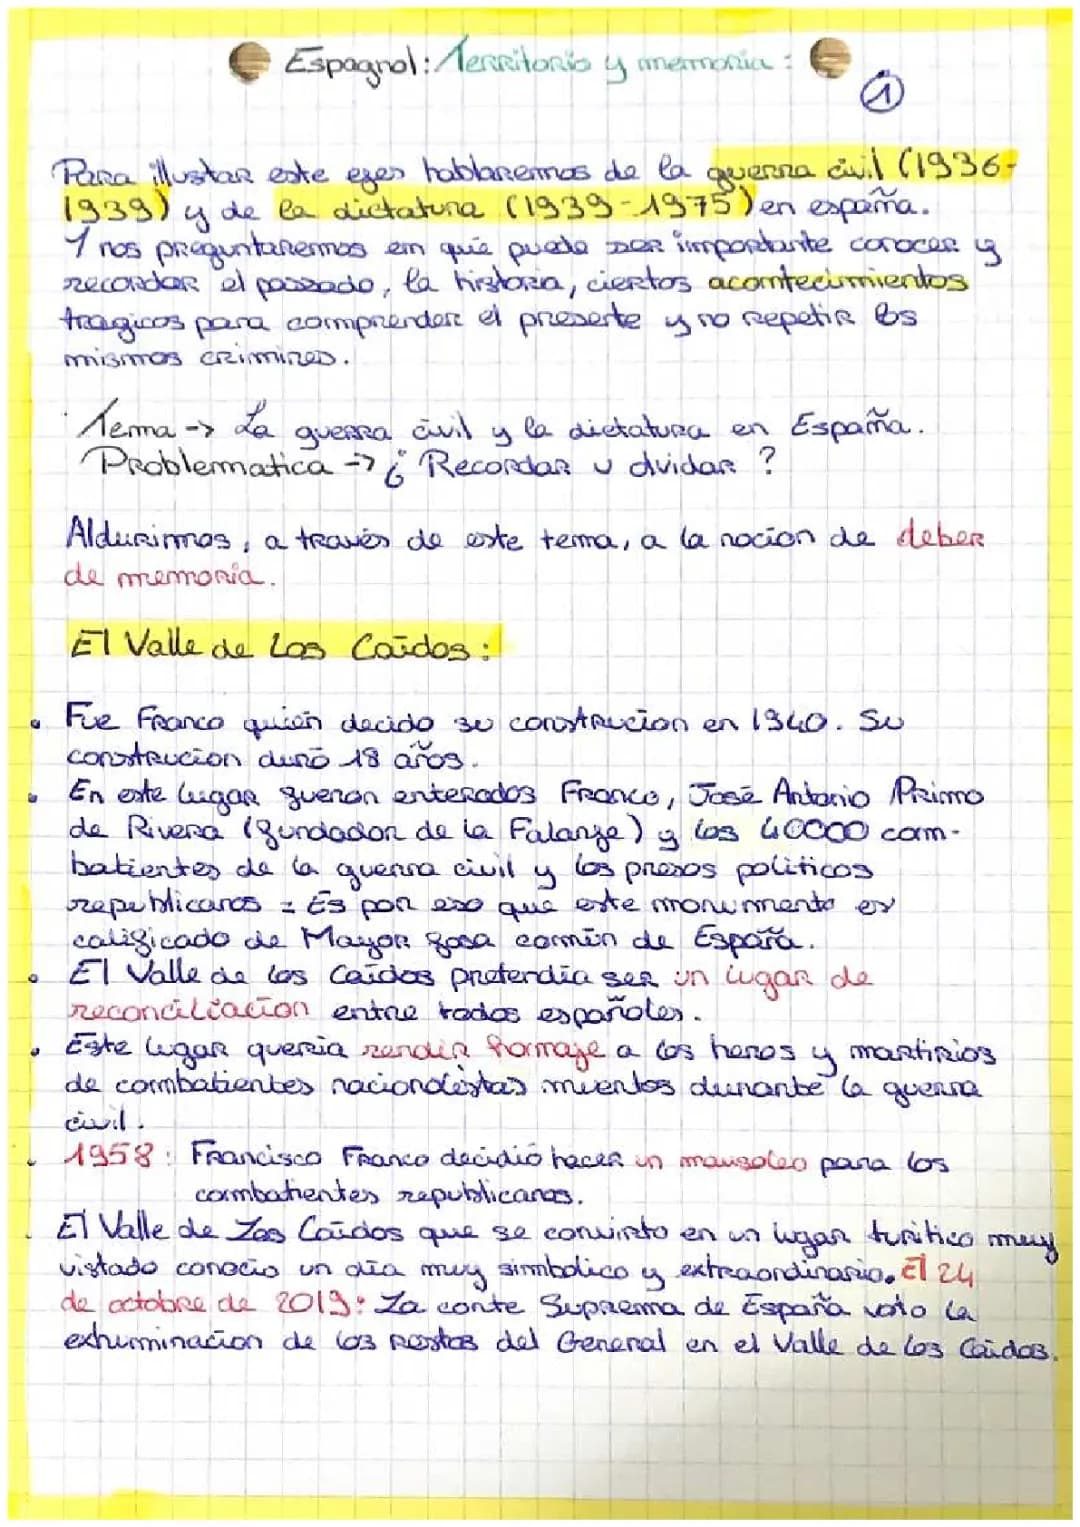 Espagnol: Territorio y memoria :
1
Para illustar este ejes hablaremos de la guerra civil (1936-
1939) y de la dictatura (1939-1975) en españa.
Y nos preguntaremos en qué puede ser importante conocer y
recordar el passado, la historia, ciertos acontecimientos
tragicos para comprender el presente y no repetir los
mismos crimines.
Tema -> La guerra civil y la dictatura en España.
Problematica -> ¿ Recordar u olvidar ?
Aldurimos, a través de este tema, a la nocion de deber
de memoria.
El Valle de Los Caídos :
• Fue Franco quién decido su construcion en 1940. Su
construcion duró 18 años.
• En este lugar fueron enterados Franco, José Antonio Primo
de Rivera (fundador de la Falange) y los 40000 com-
batientes de la guerra civil y los presos politicos
republicanos = Es por eso que este monumento es
calificado de Mayor fosa común de España.
• El Valle de los Caídos pretendía ser un lugar de
reconciliacíon entre todos españoles.
• Este lugar queria rendir homaje a los heros y martirios
de combatientes nacionalistas muertos durante la guerra
civil.
• 1958 : Francisco Franco decidió hacer un mausoleo para los
combatientes republicanos.
• El Valle de Los Caídos que se convirto en un lugar turitico muy
vistado conocio un día muy simbolico y extraordinario. El 24
de octobre de 2019: La corte Suprema de España voto la
exhuminacion de los restos del General en el Valle de los Caídos.